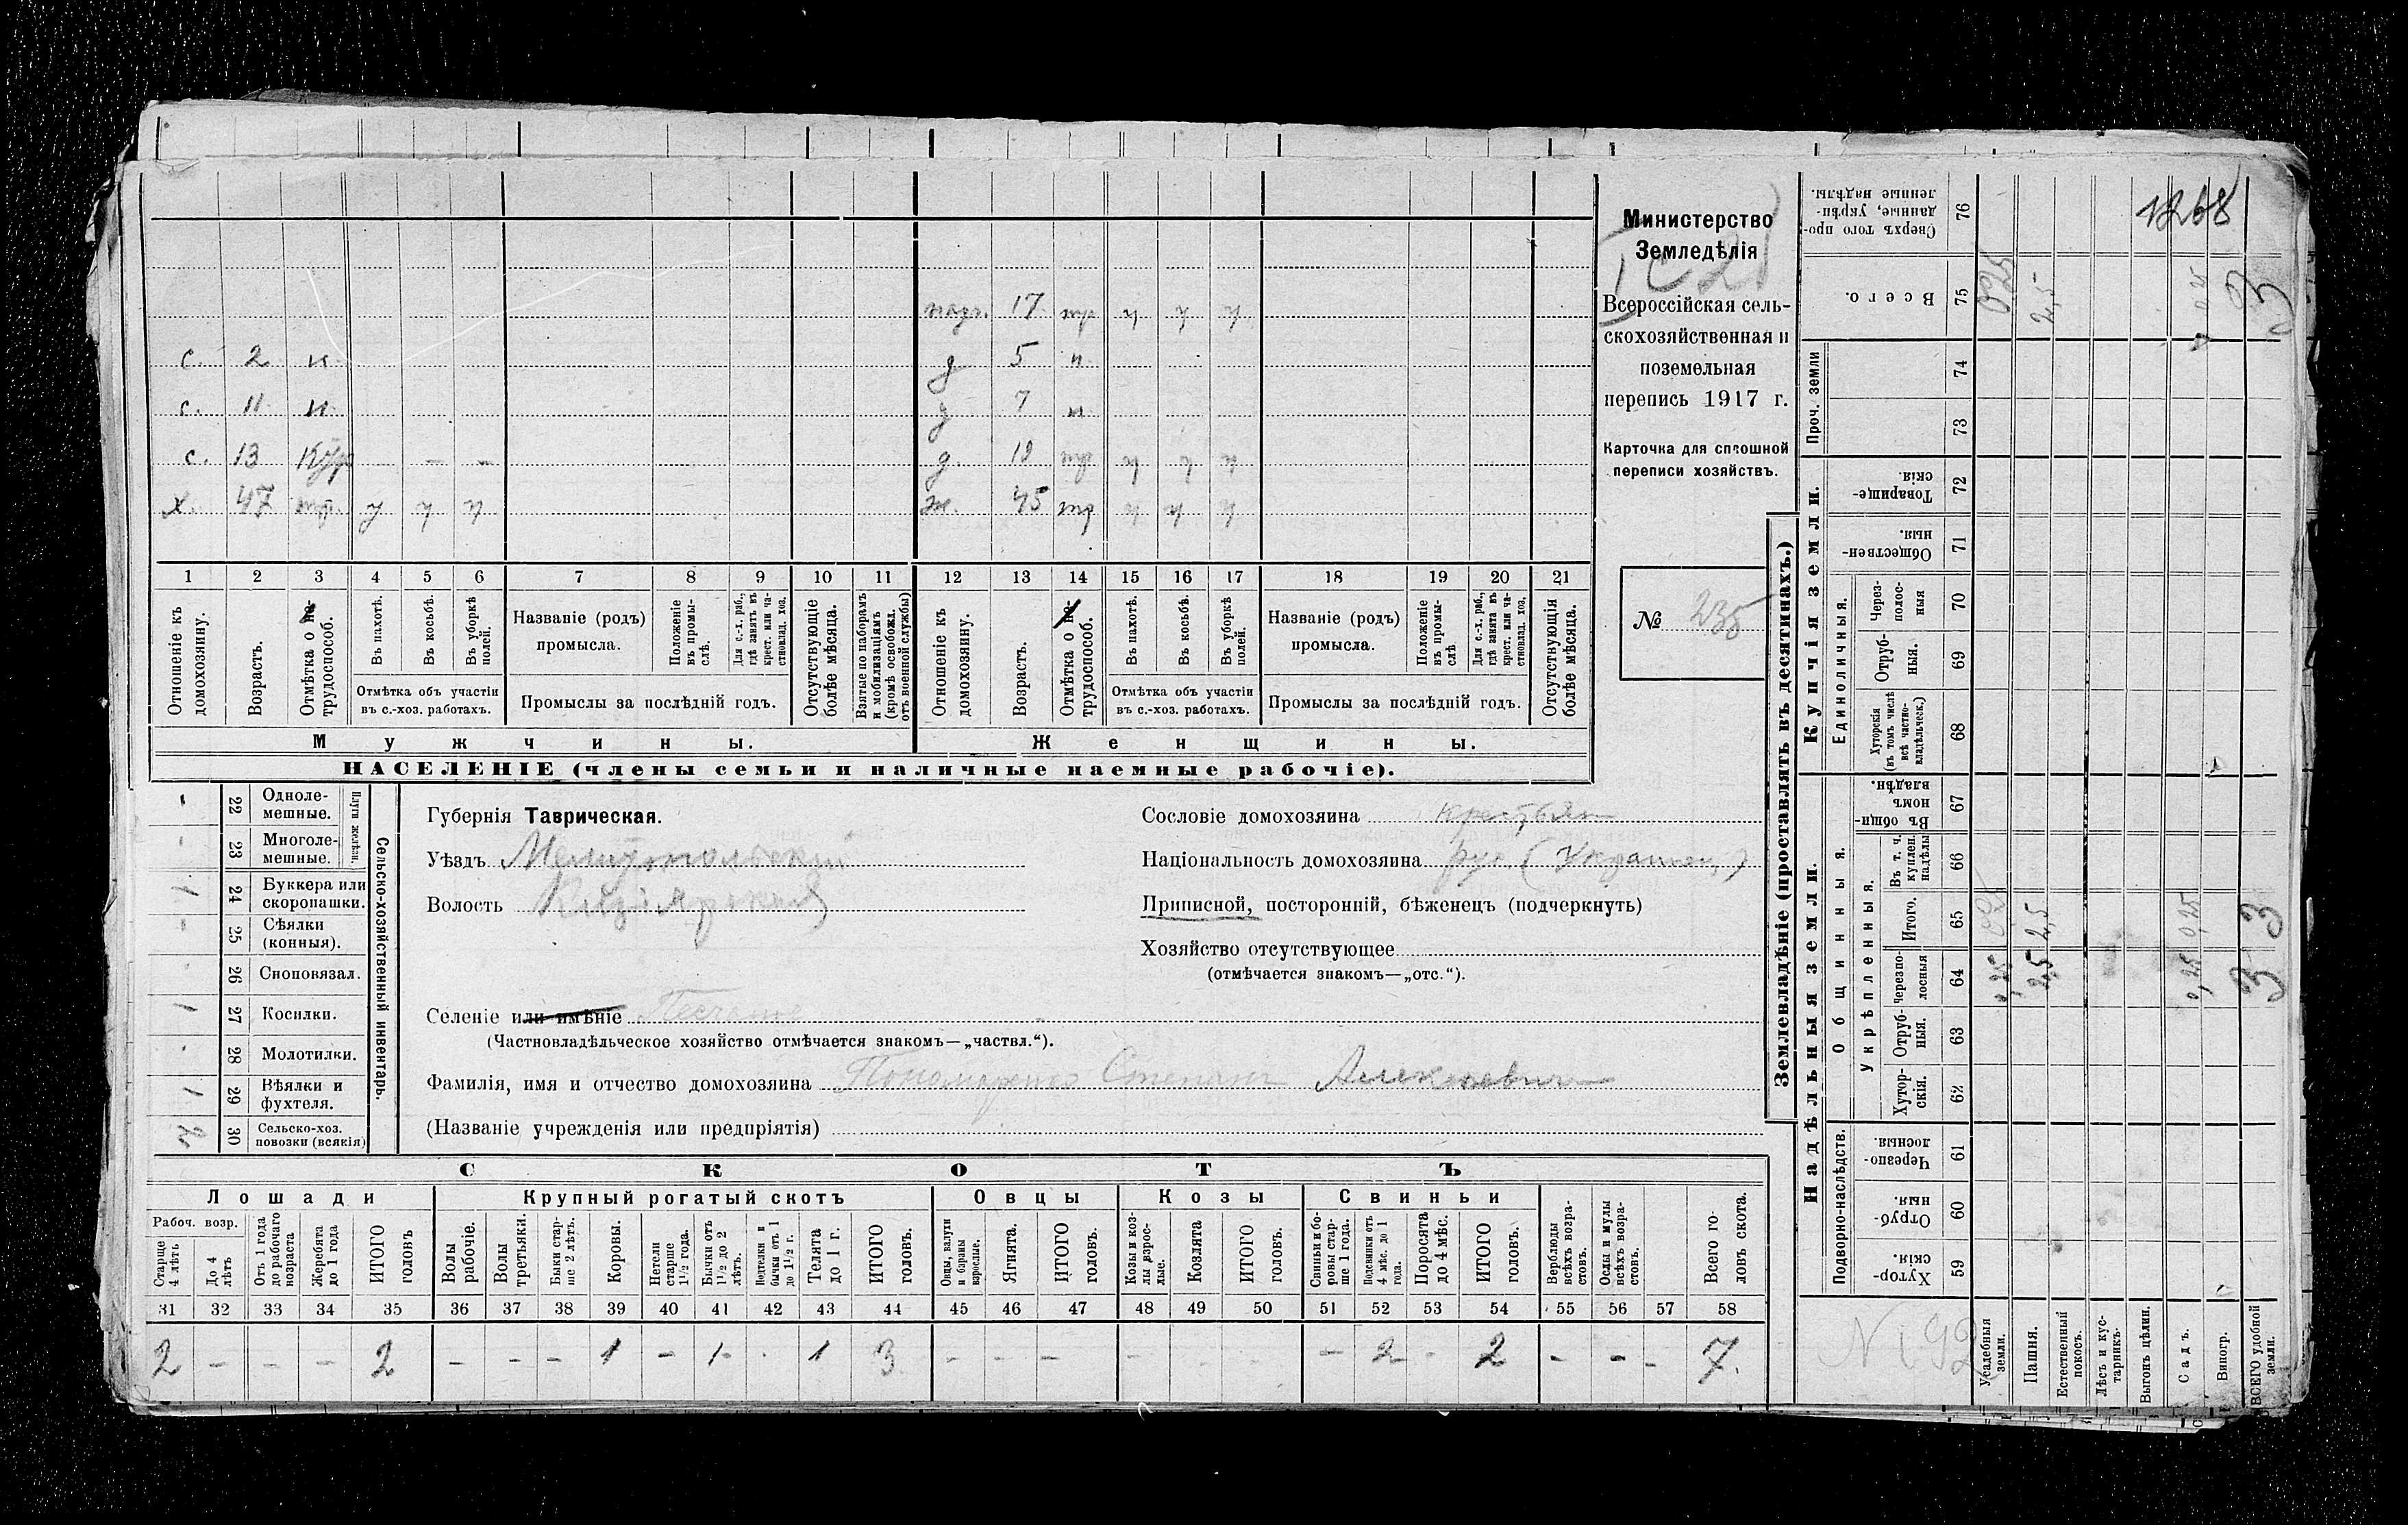 с. 2 н.
с. 11 н.
с. 13
х. 47 тр. у у у
17 тр у у у
д 5 н
д 7 н
д. 19 тр у у у
ж. 45 тр у у у
1 2 3 4 5 6 7 8 9 10 11 12 13 14 15 16 17 18 19 20 21
Отношеніе къ домохозяину.
Возрастъ.
Отмѣтка о не-трудоспособ.
Въ пахотѣ.
Въ косьбѣ.
Въ уборкѣ полей.
Отмѣтка объ участіи въ с.-хоз. работахъ.
Названіе (родъ) промысла.
Положеніе въ промыслѣ.
Для с.-х. раб., гдѣ занятъ въ крест. или частновлад. хоз.
Промыслы за послѣдній годъ.
Отсутствующіе болѣе мѣсяца.
Взятые по наборамъ и мобилизаціямъ (кромѣ освобожд. отъ военной службы)
Отношеніе къ домохозяину.
Возрастъ.
Отмѣтка о не-трудоспособ.
Въ пахотѣ.
Въ косьбѣ.
Въ уборкѣ полей.
Отмѣтка объ участіи въ с.-хоз. работахъ.
Названіе (родъ) промысла.
Положеніе въ промыслѣ
Для с.-х. раб., гдѣ занята въ крест. или частновлад. хоз.
Промыслы за послѣдній годъ.
Отсутствующія болѣе мѣсяца.
Мужчины.
Женщины.
НАСЕЛЕНІЕ (члены семьи и наличные наемные рабочіе).
Министерство
Земледѣлія
Всероссійская сель-
скохозяйственная и
поземельная
перепись 1917 г.
Карточка для сплошной
переписи хозяйствъ.
№ 235
22 Одноле-мешные.
23 Многоле-мешные.
Плуги желѣзн.
1 24 Буккера или скоропашки.
25 Сѣялки (конныя).
26 Сноповязал.
1 27 Косилки.
28 Молотилки.
1 29 Вѣялки и фухтеля.
30 Сельско-хоз. повозки (всякія)
Сельско-хозяйственный инвентарь.
Губернія Таврическая.
Уѣздъ Мелитопольскій
Волость
Селеніе или имѣніе
(Частновладѣльческое хозяйство отмѣчается знакомъ—„частвл.“).
Фамилія, имя и отчество домохозяина Пономаренко Степанъ Алексѣевичъ
(Названіе учрежденія или предпріятія)
Сословіе домохозяина
Національность домохозяина рус. (Украинец)
Приписной, посторонній, бѣженецъ (подчеркнуть)
Хозяйство отсутствующее
(отмѣчается знакомъ—„отс.“).
СКОТЪ
Лошади
Крупный рогатый скотъ
Овцы
Козы
Свиньи
Рабоч. возр.
Старше 4 лѣтъ
До 4 лѣтъ
Отъ 1 года до рабочаго возраста
Жеребята до 1 года
ИТОГО головъ
Волы рабочіе.
Волы третьяки.
Быки старше 2 лѣтъ.
Коровы.
Нетели старше 1½ года.
Бычки отъ 1½ до 2 лѣтъ.
Подтелки и бычки отъ 1 до 1½ г.
Телята до 1 г.
ИТОГО головъ.
Овцы, валухи и бараны взрослые.
Ягнята.
ИТОГО головъ.
Козы и козлы взрослые.
Козлята
ИТОГО головъ.
Свиньи и боровы старше 1 года.
Подсвинки отъ 4 мѣс. до 1 года.
Поросята до 4 мѣс.
ИТОГО головъ.
Верблюды всѣхъ возрастовъ.
Ослы и мулы всѣхъ возрастовъ.
Всего головъ скота.
31 32 33 34 35 36 37 38 39 40 41 42 43 44 45 46 47 48 49 50 51 52 53 54 55 56 57 58
2 – – – 2 – – – 1 – 1 1 3 – – – – – 2 – 2 – – – 7.
Землевладѣніе (проставлять въ десятинахъ.)
Купчія земли.
Надѣльныя земли.
76 Сверхъ того проданные, укрѣпленные надѣлы.
1268
75 Всего.
2,5
3
Проч. земли
74
73
72 Товарищескія
71 Общественныя
Единоличныя.
70 Через-полосныя
69 Отруб-ныя.
68 Хуторскія (въ томъ числѣ всѣ частновладѣльческ.)
Общинныя.
67 Въ общинномъ владѣн.
Укрѣпленныя.
66 Въ т. ч. куплен. надѣлы
65 Итого.
2,5 0,25 3
64 Черезпо-лосныя
2,5 0,25 3
63 Отруб-ныя.
62 Хутор-скія.
Подворно-наслѣдств.
61 Черезпо-лосныя.
60 Отруб-ныя.
59 Хутор-скія.
Усадебныя земли.
Пашня.
Естественный покосъ.
Лѣсъ и кустарникъ.
Выгонъ цѣлин.
Садъ.
Виногр.
ВСЕГО удобной земли.